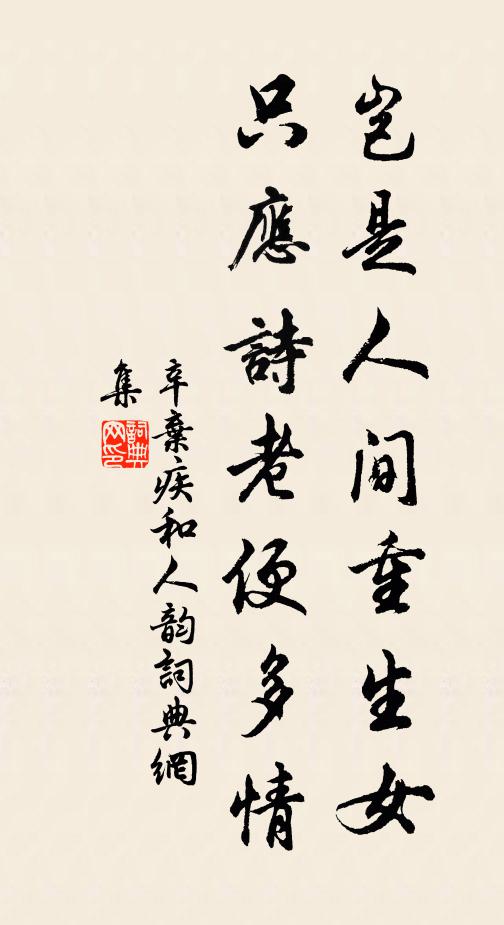 岂是人间重生女
只應詩老便多情
辛棄疾和人韵詞典網
集
詞典网印